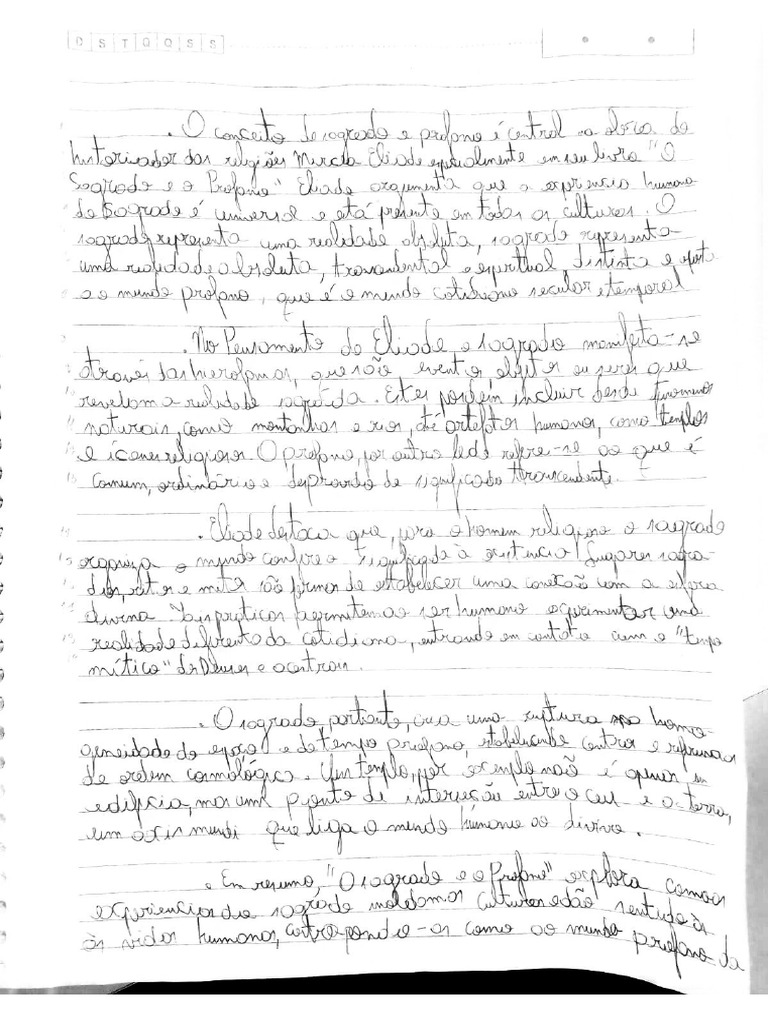 D S T Q Q S S
. O conceito de sagrado e profano é central na obra do
historiador das religiões Mircea Eliade especialmente em seu livro "O
Sagrado e o Profano" Eliade argumenta que a experiencia humana
do sagrado é universal e está presente em todas as culturas. O
sagrado representa uma realidade absoluta, sagrado representa
uma realidade absoluta, transcendental e espiritual, distinta e oposta
ao mundo profano, que é o mundo cotidiano secular e temporal
. No Pensamento de Eliade o sagrado manifesta-se
através das hierofanias, que são eventos, objetos ou seres que
revelam a realidade sagrada. Estes podem incluir desde fenomenos
naturais, como montanhas e rios, até artefatos humanos, como templos
e ícones religiosos. O profano, por outro lado refere-se ao que é
comum, ordinário e desprovido de significado transcendente.
. Eliade destaca que, para o homem religioso o sagrado
organiza o mundo confere significado à existencia! Lugares sagra-
dos, ritos e mitos são formas de estabelecer uma conexão com a esfera
divina Tais práticas permitem ao ser humano experimentar uma
realidade diferente da cotidiana, entrando em contato com o "tempo
mítico" de Deuses e ancestrais.
. O sagrado, portanto, cria uma ruptura na homo-
geneidade do espaço e do tempo profano, estabelecendo centros e referencias
de ordem cosmológica. Um templo, por exemplo não é apenas um
edifício, mas um ponto de interseção entre o céu e a terra,
um axis mundi que liga o mundo humano ao divino.
. Em resumo, "O sagrado e o Profano" explora como as
experiencias do sagrado moldam as culturas e dão sentido às
às vidas humanas, contrapondo-as como ao mundo profano da